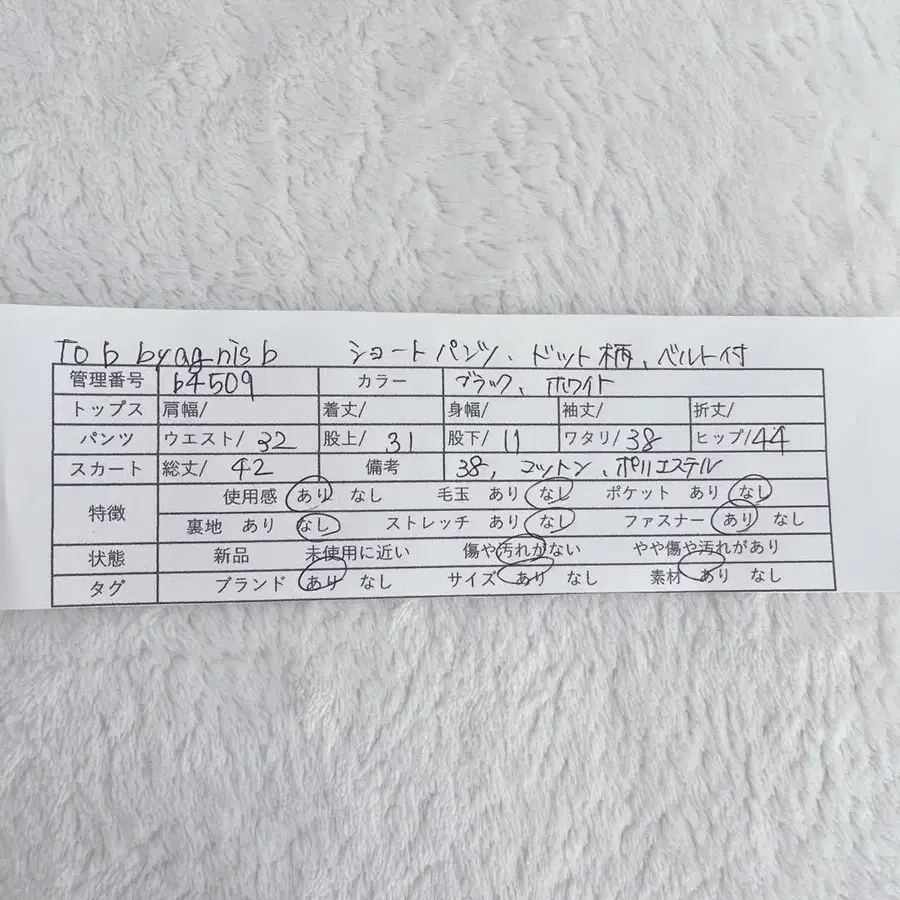 To b by ag nis b ショートパンツ、ドット柄、ベルト付
管理番号 b4509 カラー ブラック、ホワイト
トップス 肩幅/ 着丈/ 身幅/ 袖丈/ 裄丈/
パンツ ウエスト/ 32 股上/ 31 股下/ 11 ワタリ/38 ヒップ/44
スカート 総丈/ 42 備考 38, コットン、ポリエステル
特徴 使用感 あり なし 毛玉 あり なし ポケット あり なし
裏地 あり なし ストレッチ あり なし ファスナー あり なし
状態 新品 未使用に近い 傷や汚れがない やや傷や汚れがあり
タグ ブランド あり なし サイズ あり なし 素材 あり なし